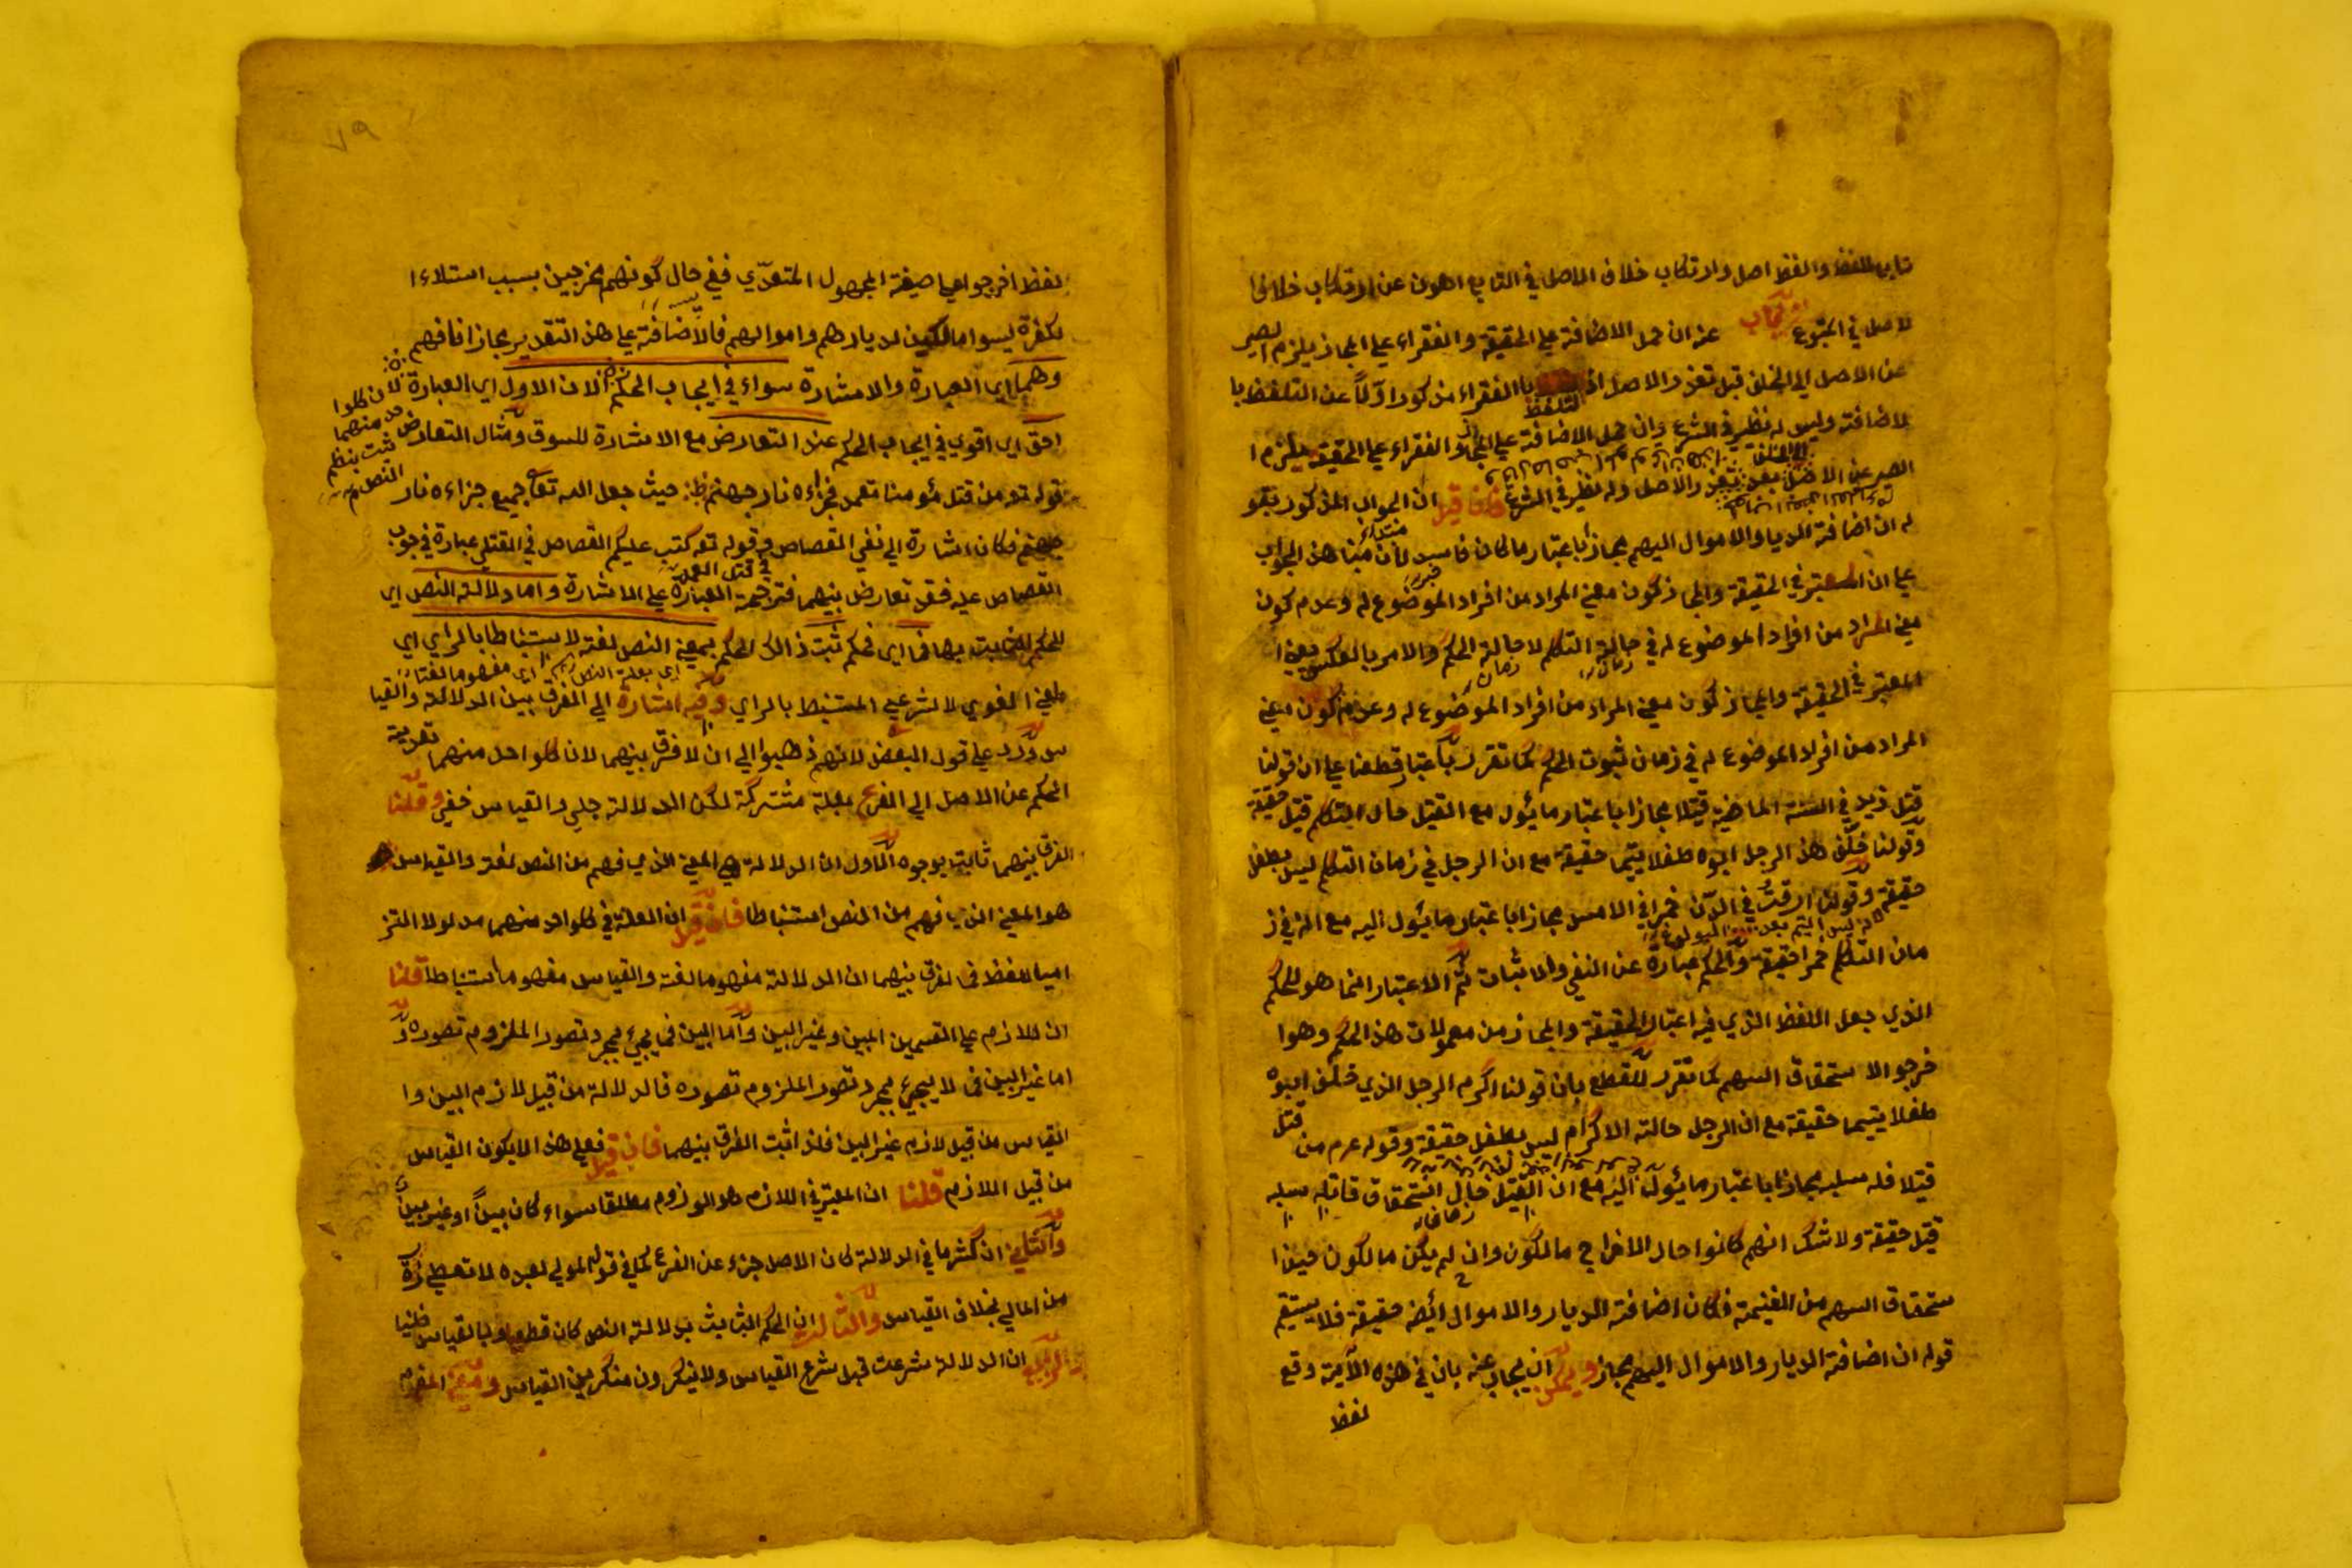 تابع للفظ واللفظ اصل وارتكاب خلاف الاصل في التابع اهون عن ارتكاب خلاف ا
لاصل في المتبوع عنه ان حمل الاضافة علي الحقيقة والفقراء علي المجاز يلزم المصير
عن الاصل الي الخلف قبل تعذر الاصل اذ التلفظ با الفقراء مذكور اوّلاً عن التلفظ با
لاضافة وليس له نظير في الشرع وان حمل الاضافة علي المجاز والفقراء علي الحقيقة يلزم ا
لمصير عن الاصل بعد تعذر الاصل وله نظير في الشرع فان قيل ان الجواب المذكور بقو
له ان اضافة الديار والاموال اليهم مجاز باعتبار ما كان فاسد لأن مبنا هذا الجواب
علي ان المعتبر في الحقيقة والمجاز كون معني المراد من افراد الموضوع له وعدم كون
معني المراد من افراد الموضوع له في حالة التكلم لا حالة الحكم والامر بالعكس يعني ا
لمعتبر في الحقيقة والمجاز كون معني المراد من افراد الموضوع له وعدم كون معني
المراد من افراد الموضوع له في زمان ثبوت الحكم كما تقرر باعتبار قطعنا علي ان قولنا
قتل زيد في السنة الماضية قتيلا مجازا باعتبار ما يئول مع القتيل حال التكلم قتيل حقيقة
وقولنا خلّف هذا الرجل ابوه طفلا يتيما حقيقة مع ان الرجل في زمان التكلم ليس بطفل
حقيقة وقولنا ارقت في الدنّ خمرا في الامس مجازا باعتبار ما يئول اليه مع انه في ز
مان التكلم خمرا حقيقة والحكم عبارة عن النفي والاثبات ثم الاعتبار انما هو للحكم
الذي جعل اللفظ الذي فيه اعتبار الحقيقة والمجاز من معمولات هذا الحكم وهو ا
خرجوا لا ستحقاق السهم كما تقرر للقطع بان قولنا اكرم الرجل الذي خلّف ابوه
طفلا يتيما حقيقة مع ان الرجل حالة الاكرام ليس بطفل حقيقة وقوله عم من قتل
قتيلا فله سلبه مجازا باعتبار ما يئول اليه مع ان القتيل حال استحقاق قاتله سلبه
قتيل حقيقة ولا شك انهم كانوا حال الاخراج مالكون وان لم يكن مالكون حين ا
ستحقاق السهم من الغنيمة فكان اضافة الديار والاموال ايضا حقيقة فلا يستقيم
قوله ان اضافة الديار والاموال اليهم مجاز ويمكن ان يجاب عنه بان في هذه الآية وقع
لفظ
لفظ اخرجوا علي صيغة المجهول المتعدّي ففي حال كونهم مخرجين بسبب استلاء ا
لكفرة ليسوا مالكين لديارهم واموالهم فالاضافة علي هذا التقدير مجاز فافهم
وهما اي العبارة والاشارة سواء في ايجاب الحكم الا ان الاول اي العبارة
لان كلوا
حد منهما
ثبت بنظم
النص
احق اي اقوي في ايجاب الحكم عند التعارض مع الاشارة للسوق ومثال التعارض
قوله تع من قتل مئومنا متعمدا فجزاءه نار جهنم حيث جعل الله تعا جميع جزاءه نار
جهنم فكان اشارة الي نفي القصاص وقوله تع كتب عليكم القصاص في القتلي عبارة في وجوب
في قتل العمد
القصاص عليه فقد تعارض بينهما فترجحت العبارة علي الاشارة واما دلالة النص اي
الحكم الثابت بها فما اي فحكم ثبت ذالك الحكم بمعني النص لغة لا استنباطا بالراي اي
المعني اللغوي لا الشرعي المستنبط بالراي وفيه اشارة الي الفرق بين الدلالة والقيا
س ورد علي قول البعض لانهم ذهبوا الي ان لا فرق بينهما لان كلواحد منهما تعدية
الحكم عن الاصل الي الفرع بعلة مشتركة لكن الدلالة جلي والقياس خفي وقلنا
الفرق بينهما ثابت بوجوه الاول ان الدلالة هي المعني الذي فهم من النص لغة والقياس
هو المعني الذي فهم من النص استنباطا فان قيل ان العلة في كلواحد منهما مدلولا التز
اميا للفظ فما الفرق بينهما ان الدلالة مفهوما لغة والقياس مفهوما استنباطا قلنا
ان اللازم علي القسمين البين وغير البين واما البين فما يجيء بمجرد تصور الملزوم تصوره و
اما غير البين فما لا يجيء بمجرد تصور الملزوم تصوره فالدلالة من قبيل لازم البين وا
القياس من قبيل لازم غير البين فاذا اثبت الفرق بينهما فان قيل فعلي هذا لا يكون القياس
من قبيل اللازم قلنا ان المعتبر في اللازم هو اللزوم مطلقا سواء كان بينًا او غير بين
والثاني ان كثير ما في الدلالة كان الاصل جزء عن الفرع كما في قوله المولي لعبده لا تعطي ذرة
من المالي بخلاف القياس والثالث ان الحكم الثابت بدلالة النص كان قطعيا وبالقياس ظنيا
والرابع ان الدلالة شرعت قبل شرع القياس ولا ينكرون منكرين القياس